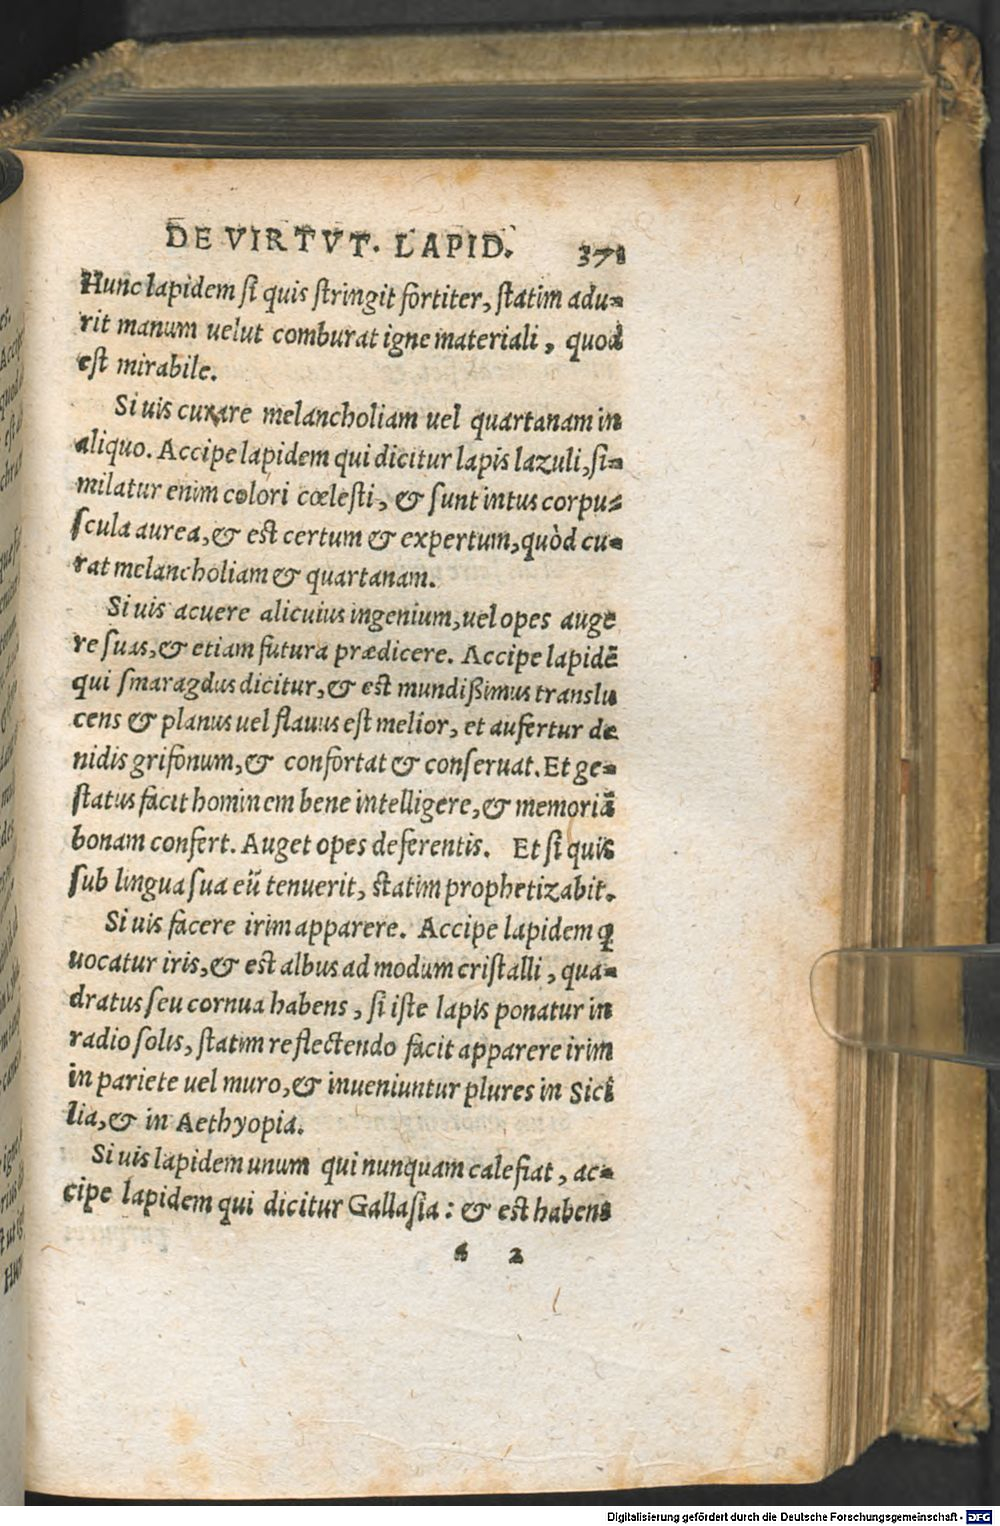 DE VIRTVT. LAPID. 371
Hunc lapidem si quis stringit fortiter, statim adu-
rit manum uelut comburat igne materiali, quod
est mirabile.
Si uis curare melancholiam uel quartanam in
aliquo. Accipe lapidem qui dicitur lapis lazuli, si-
milatur enim colori cœlesti, & sunt intus corpu-
scula aurea, & est certum & expertum, quòd cu-
rat melancholiam & quartanam.
Si uis acuere alicuius ingenium, uel opes auge
re suas, & etiam futura prædicere. Accipe lapidẽ
qui smaragdus dicitur, & est mundißimus translu
cens & planus uel flauus est melior, et aufertur de
nidis grifonum, & confortat & conseruat. Et ge-
status facit hominem bene intelligere, & memoriã
bonam confert. Auget opes deferentis. Et si quis
sub lingua sua eũ tenuerit, statim prophetizabit.
Si uis facere irim apparere. Accipe lapidem ꝗ
uocatur iris, & est albus ad modum cristalli, qua-
dratus seu cornua habens, si iste lapis ponatur in
radio solis, statim reflectendo facit apparere irim
in pariete uel muro, & inueniuntur plures in Sici
lia, & in Aethyopia.
Si uis lapidem unum qui nunquam calefiat, ac-
cipe lapidem qui dicitur Gallasia: & est habens
2
Digitalisierung gefördert durch die Deutsche Forschungsgemeinschaft - DFG